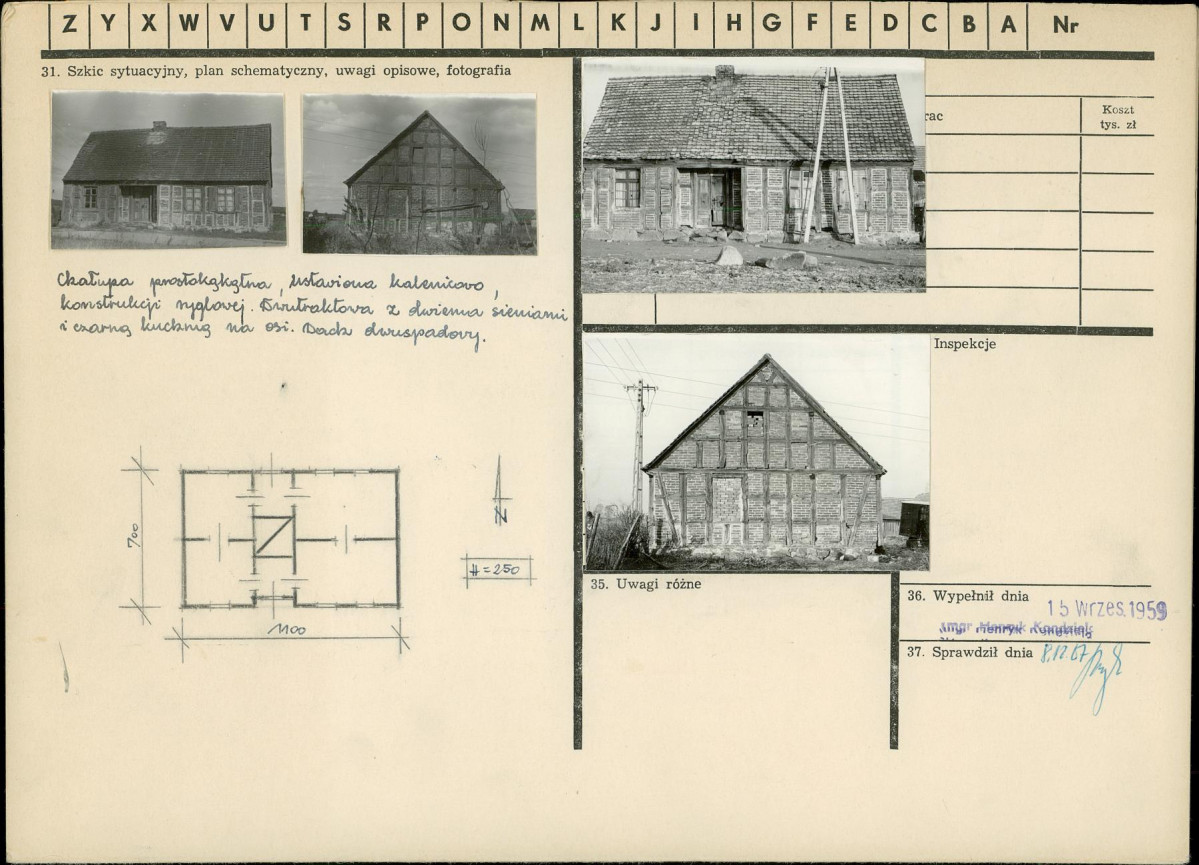 Z Y X W V U T S R P O N M L K J I H G F E D C B A Nr
31. Szkic sytuacyjny, plan schematyczny, uwagi opisowe, fotografia
rac
Koszt
tys. zł
Chałupa prostokątna, ustawiona kalenicowo,
konstrukcji ryglowej. Dwutraktowa z dwiema sieniami
i czarną kuchnią na osi. Dach dwuspadowy.
700
1100
N
H = 250
Inspekcje
35. Uwagi różne
36. Wypełnił dnia
15 Wrzes. 1959
mgr Henryk
37. Sprawdził dnia 8.12.67